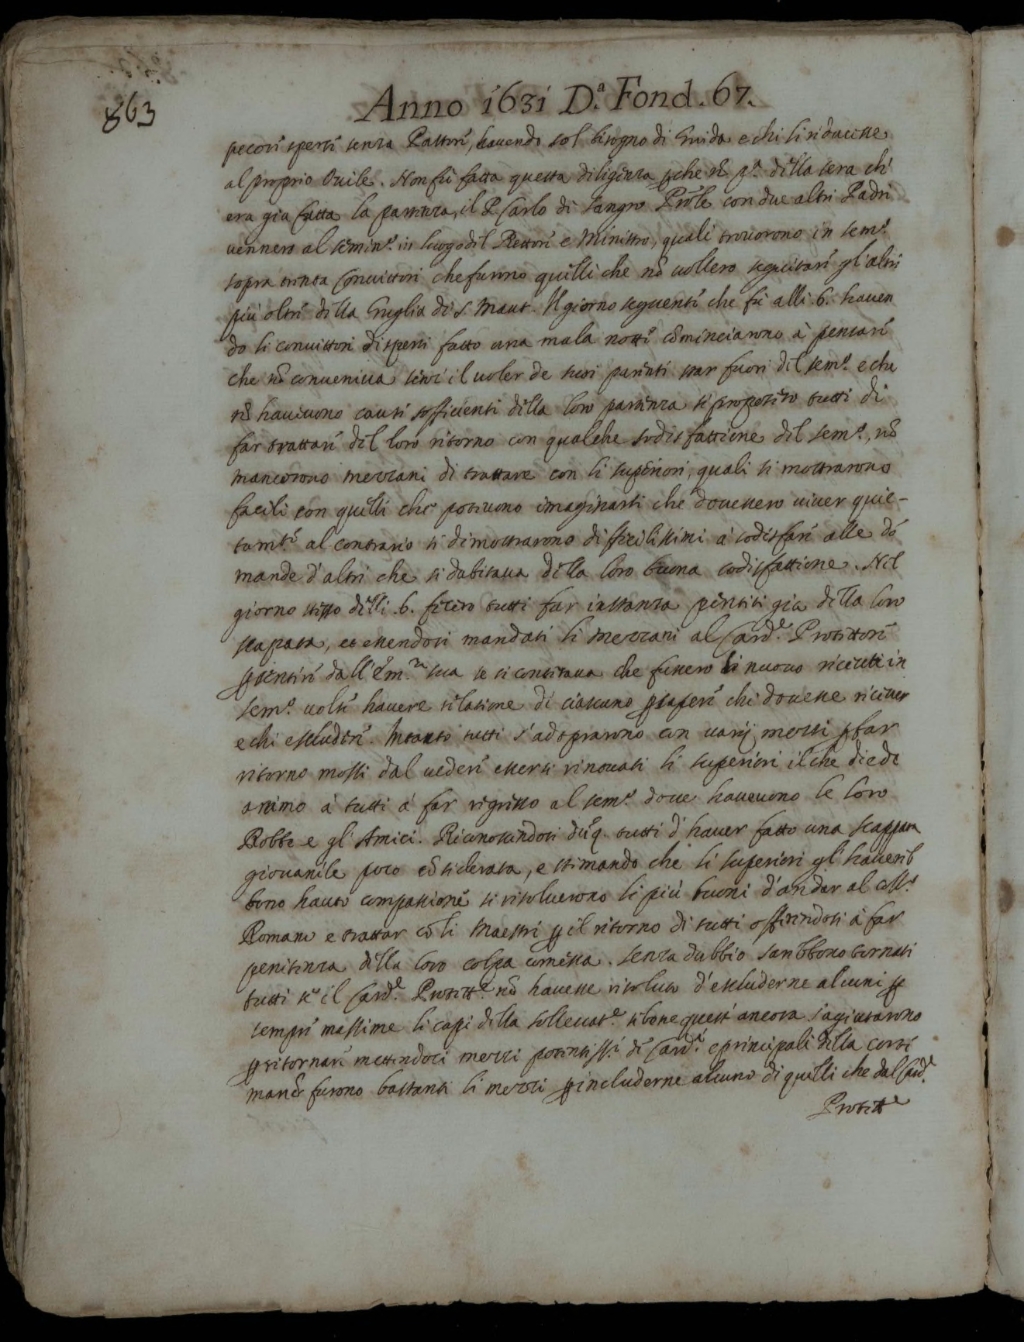 863
Anno 1631 D.a Fond. 67.
pecore sperse senza Pastore, havendo sol bisogno di Guida e chi li riducesse
al proprio Ovile. Non fu fatta questa diligenza che nõ p.a della sera ch'
era gia fatta la partenza, il P. Carlo di Sangro Pr̃ole con due altri Padri
vennero al Semin.o in luogo del Rettore e Ministro, quali trovorono in Sem.o
sopra trenta Convittori che furono quelli che nõ vollero seguitare gl'altri
più oltre della Guglia di S. Maut. Il giorno seguente che fù alli 6. haven
do li convittori dispersi fatto una mala notte cõminciarono à pensare
che nõ conveniva senz' il voler de suoi parenti star fuori del Sem.o e che
nõ havevono cause sofficienti della loro partenza si proposero tutti di
far trattare del loro ritorno con qualche sodisfattione del Sem.o, nõ
mancorono mezzani di trattare con li superiori, quali si mostrarono
facili con quelli che potevono imaginarsi che dovessero viver quie-
tam.te al contrario si dimostrarono difficilissimi à sodisfare alle do
mande d'altri che si dubitava della loro buona sodisfattione. Nel
giorno stesso delli .6. fecero tutti far instanza pentiti gia della loro
scappata, et essendosi mandati li mezzani al Card.e Protettore
p sentire dall'Em.za sua se si contentava che fussero di nuovo ricevuti in
Sem.o volse havere relatione di ciascuno p sapere chi dovesse ricever
e chi escludere. Intanto tutti s'adoprarono con varij mezzi p far
ritorno mossi dal vedere essersi rinovati li superiori il che diede
animo à tutti à far regresso al Sem.o dove havevono le loro
Robbe e gl'Amici. Riconoscendosi dũq. tutti d'haver fatto una scappata
giovanile poco cõsiderata, e stimando che li superiori gl'havereb
bono havuto compassione si risolverono li più buoni d'andar al Coll.o
Romano e trattar cõ li Maestri p il ritorno di tutti offerendosi à far
penitenza della loro colpa comessa. Senza dubbio sarebbono tornati
tutti se il Card.e Protett.e nõ havesse risoluto d'escluderne alcuni p
sempre massime li capi della sollevat.e sibene questi ancora s'agiutarono
p ritornare mettendoci mezzi potentiss.i di Card.i e principali della corte
ma nõ furono bastanti li mezzi p includerne alcuno di quelli che dal Card.e
Protett.e